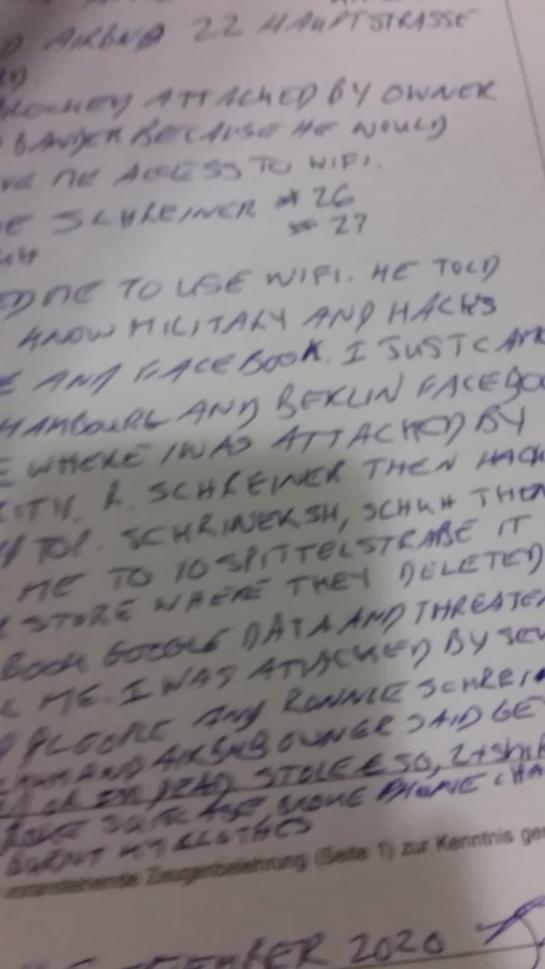 AIRBNB 22 HAUPTSTRASSE
ATTACHED BY OWNER
BECAUSE HE WOULD
ME ACCESS TO WIFI.
SCHREINER * 26
* 27
ME TO USE WIFI. HE TOLD
KNOW MILITARY AND HACKS
AND FACEBOOK. I JUST CAM
HAMBOURG AND BERLIN FACEBOO
WHERE I WAS ATTACHED BY
R. SCHREINER THEN HACK
TOP. SCHRINERSH, SCHUH THEN
ME TO 10 SPITTELSTRABE IT
STORE WHERE THEY DELETED
BOOK GOOGLE DATA AND THREATEN
ME. I WAS ATTACHED BY SEV
PLEOPLE AND RONNIE SCHREIN
AND AIRBNB OWNER SAID GE
DEAD STOLE € 50, 2 TSHIR
SUITCASE MORE PHONE CHA
BURNT MY CLOTHES
umstehende Zeugenbelehrung (Seite 1) zur Kenntnis ge
EMBER 2020